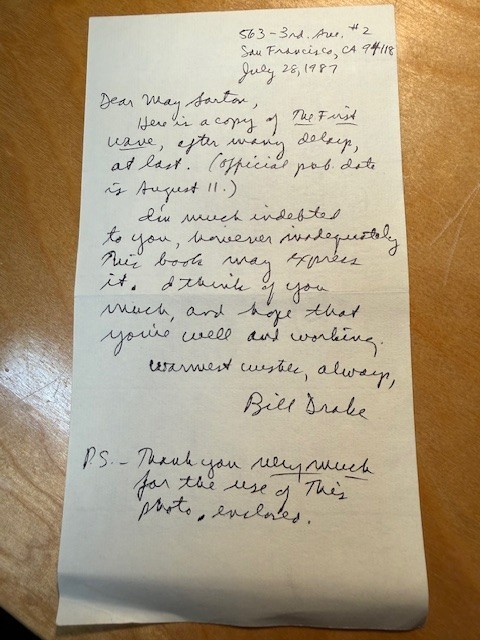 563 - 3rd. Ave. #2
San Francisco, CA 94118
July 28, 1987
Dear May Sarton,
Here is a copy of The First
Wave, after many delays,
at last. (Official pub. date
is August 11.)
I'm much indebted
to you, however inadequately
this book may express
it. I think of you
much, and hope that
you're well and working.
Warmest wishes, always,
Bill Drake
P.S. - Thank you very much
for the use of this
photo, enclosed.